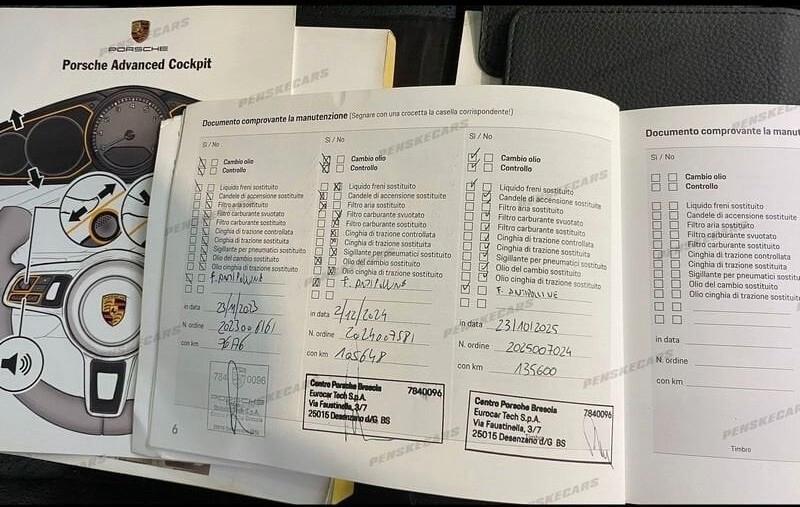 PORSCHE
Porsche Advanced Cockpit
Documento comprovante la manutenzione (Segnare con una crocetta la casella corrispondente!)
Sì / No
Cambio olio
Controllo
Liquido freni sostituito
Candele di accensione sostituite
Filtro aria sostituito
Filtro carburante svuotato
Filtro carburante sostituito
Cinghia di trazione controllata
Cinghia di trazione sostituita
Sigillante per pneumatici sostituito
Olio del cambio sostituito
Olio cinghia di trazione sostituito
F. ANTIPOLLINE
in data 23/11/2023
N. ordine 2023006161
con km
7840096
PORSCHE
6
Sì / No
Cambio olio
Controllo
Liquido freni sostituito
Candele di accensione sostituite
Filtro aria sostituito
Filtro carburante svuotato
Filtro carburante sostituito
Cinghia di trazione controllata
Cinghia di trazione sostituita
Sigillante per pneumatici sostituito
Olio del cambio sostituito
Olio cinghia di trazione sostituito
F. ANTIPOLLINE
in data 2/12/2024
N. ordine 2024007581
con km 105648
Centro Porsche Brescia 7840096
Eurocar Tech S.p.A.
Via Faustinella, 3/7
25015 Desenzano d/G BS
Sì / No
Cambio olio
Controllo
Liquido freni sostituito
Candele di accensione sostituite
Filtro aria sostituito
Filtro carburante svuotato
Filtro carburante sostituito
Cinghia di trazione controllata
Cinghia di trazione sostituita
Sigillante per pneumatici sostituito
Olio del cambio sostituito
Olio cinghia di trazione sostituito
F. ANTIPOLLINE
in data 23/10/2025
N. ordine 2025007024
con km 135600
Centro Porsche Brescia 7840096
Eurocar Tech S.p.A.
Via Faustinella, 3/7
25015 Desenzano d/G BS
Documento comprovante la manut
Sì / No
Cambio olio
Controllo
Liquido freni sostituito
Candele di accensione sostituite
Filtro aria sostituito
Filtro carburante svuotato
Filtro carburante sostituito
Cinghia di trazione controllata
Cinghia di trazione sostituita
Sigillante per pneumatici sostit
Olio del cambio sostituito
Olio cinghia di trazione sostituit
in data
N. ordine
con km
Timbro
PENSKECARS